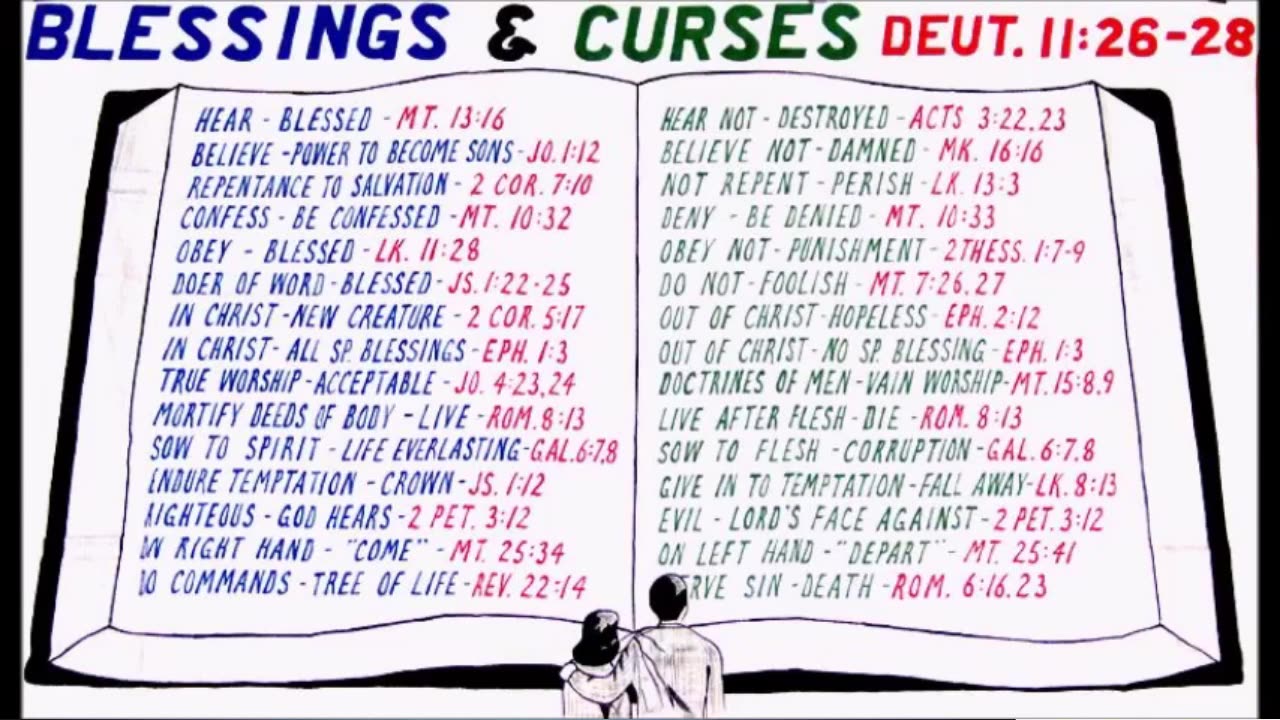 BLESSINGS & CURSES DEUT. 11:26-28
HEAR - BLESSED - MT. 13:16
BELIEVE - POWER TO BECOME SONS - JO. 1:12
REPENTANCE TO SALVATION - 2 COR. 7:10
CONFESS - BE CONFESSED - MT. 10:32
OBEY - BLESSED - LK. 11:28
DOER OF WORD - BLESSED - JS. 1:22-25
IN CHRIST - NEW CREATURE - 2 COR. 5:17
IN CHRIST - ALL SP. BLESSINGS - EPH. 1:3
TRUE WORSHIP - ACCEPTABLE - JO. 4:23,24
MORTIFY DEEDS OF BODY - LIVE - ROM. 8:13
SOW TO SPIRIT - LIFE EVERLASTING - GAL. 6:7,8
ENDURE TEMPTATION - CROWN - JS. 1:12
RIGHTEOUS - GOD HEARS - 2 PET. 3:12
ON RIGHT HAND - "COME" - MT. 25:34
DO COMMANDS - TREE OF LIFE - REV. 22:14
HEAR NOT - DESTROYED - ACTS 3:22,23
BELIEVE NOT - DAMNED - MK. 16:16
NOT REPENT - PERISH - LK. 13:3
DENY - BE DENIED - MT. 10:33
OBEY NOT - PUNISHMENT - 2 THESS. 1:7-9
DO NOT - FOOLISH - MT. 7:26,27
OUT OF CHRIST - HOPELESS - EPH. 2:12
OUT OF CHRIST - NO SP. BLESSING - EPH. 1:3
DOCTRINES OF MEN - VAIN WORSHIP - MT. 15:8,9
LIVE AFTER FLESH - DIE - ROM. 8:13
SOW TO FLESH - CORRUPTION - GAL. 6:7,8
GIVE IN TO TEMPTATION - FALL AWAY - LK. 8:13
EVIL - LORD'S FACE AGAINST - 2 PET. 3:12
ON LEFT HAND - "DEPART" - MT. 25:41
SERVE SIN - DEATH - ROM. 6:16,23